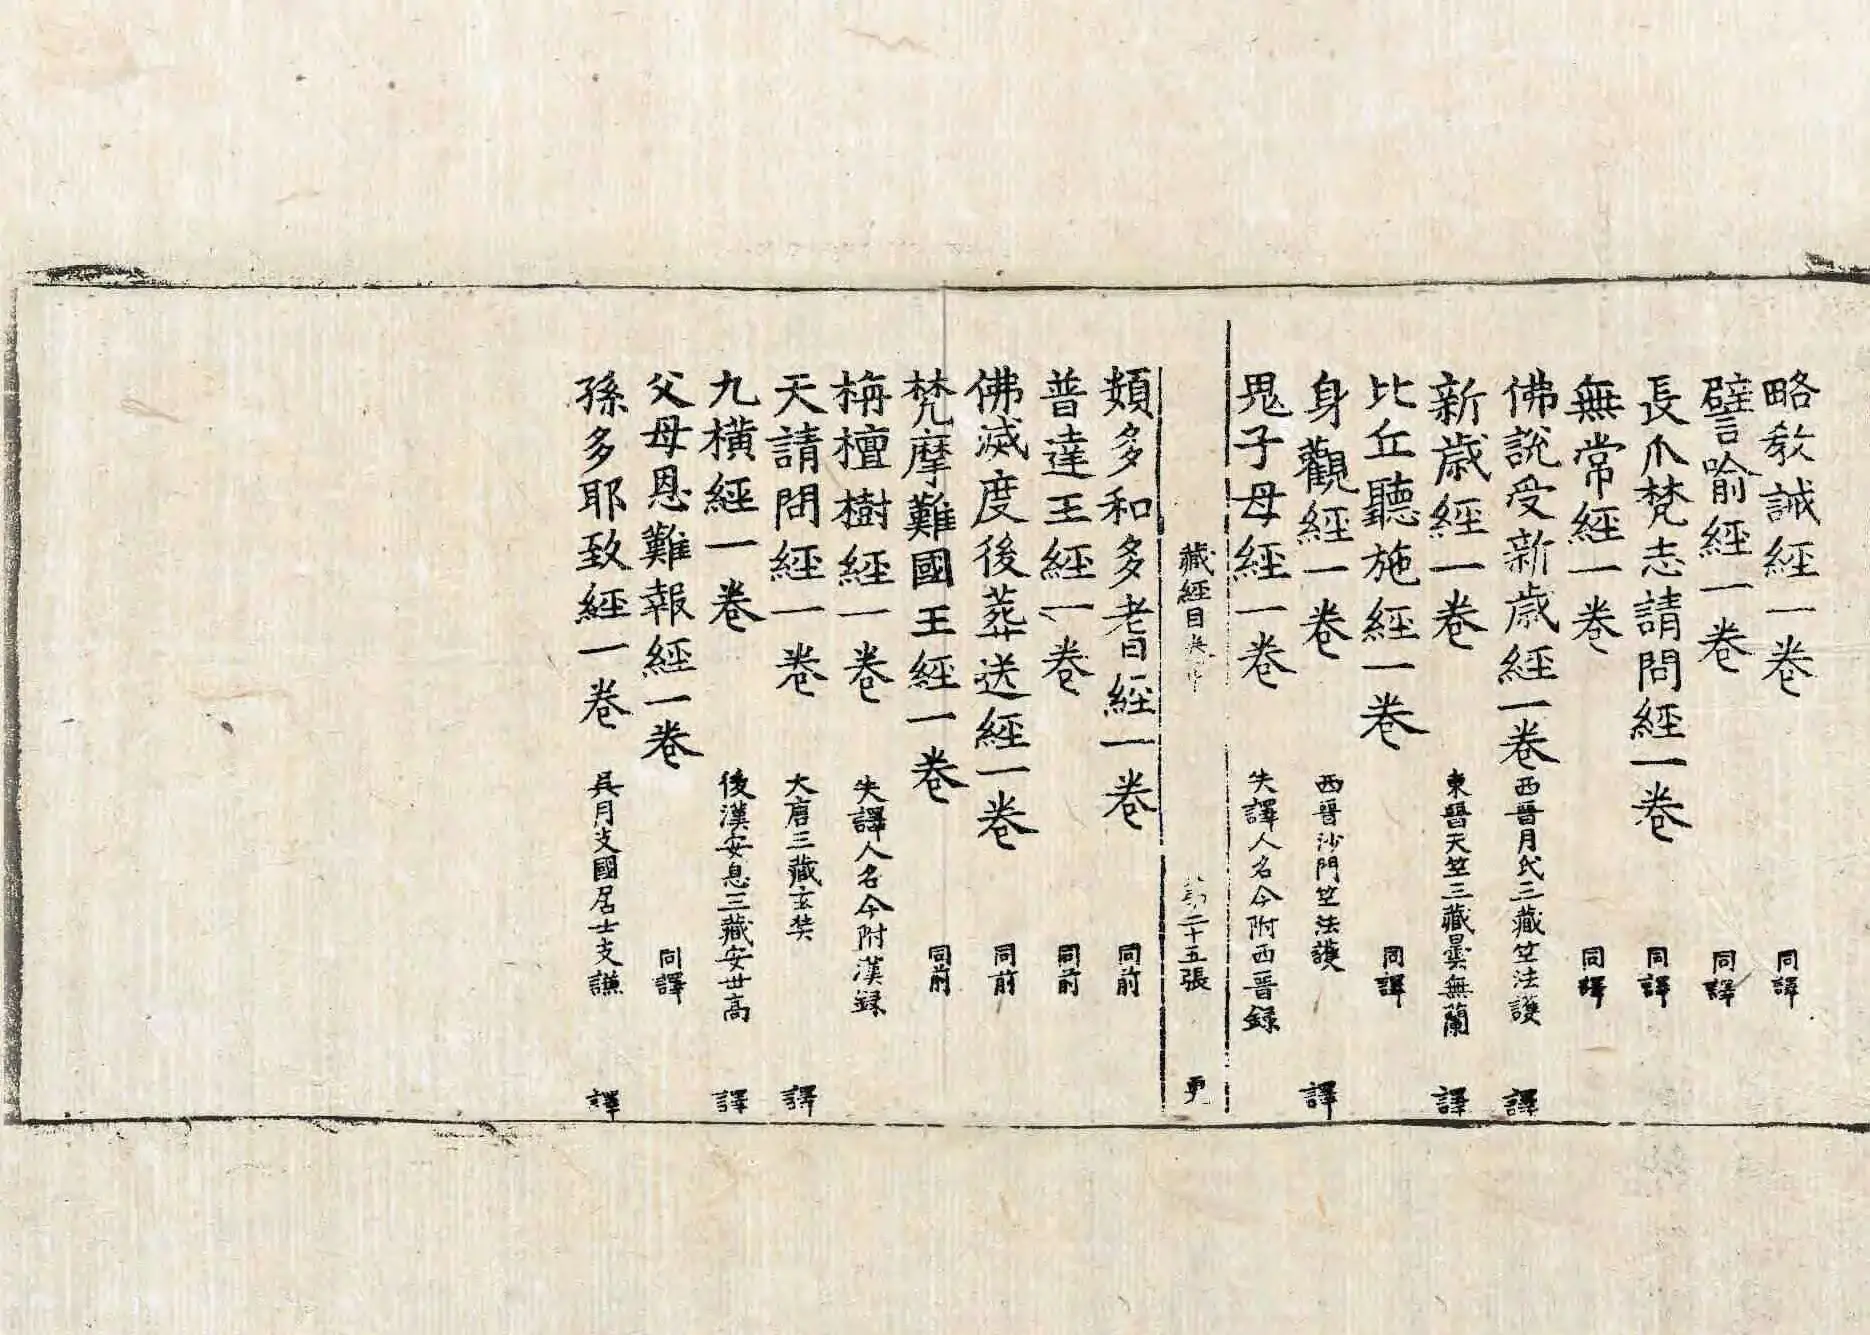 略教誡經一卷 同譯
譬喻經一卷 同譯
長爪梵志請問經一卷 同譯
無常經一卷 同譯
佛說受新歲經一卷 西晉月氏三藏竺法護 譯
新歲經一卷 東晉天竺三藏曇無蘭 譯
比丘聽施經一卷 同譯
身觀經一卷 西晉沙門竺法護 譯
鬼子母經一卷 失譯人名今附西晉錄
藏經目 第二十五張 更
頞多和多耆經一卷 同前
普達王經一卷 同前
佛滅度後葬送經一卷 同前
梵摩難國王經一卷 同前
栴檀樹經一卷 失譯人名今附漢錄
天請問經一卷 大唐三藏玄奘 譯
九橫經一卷 後漢安息三藏安世高 譯
父母恩難報經一卷 同譯
孫多耶致經一卷 吳月支國居士支謙 譯